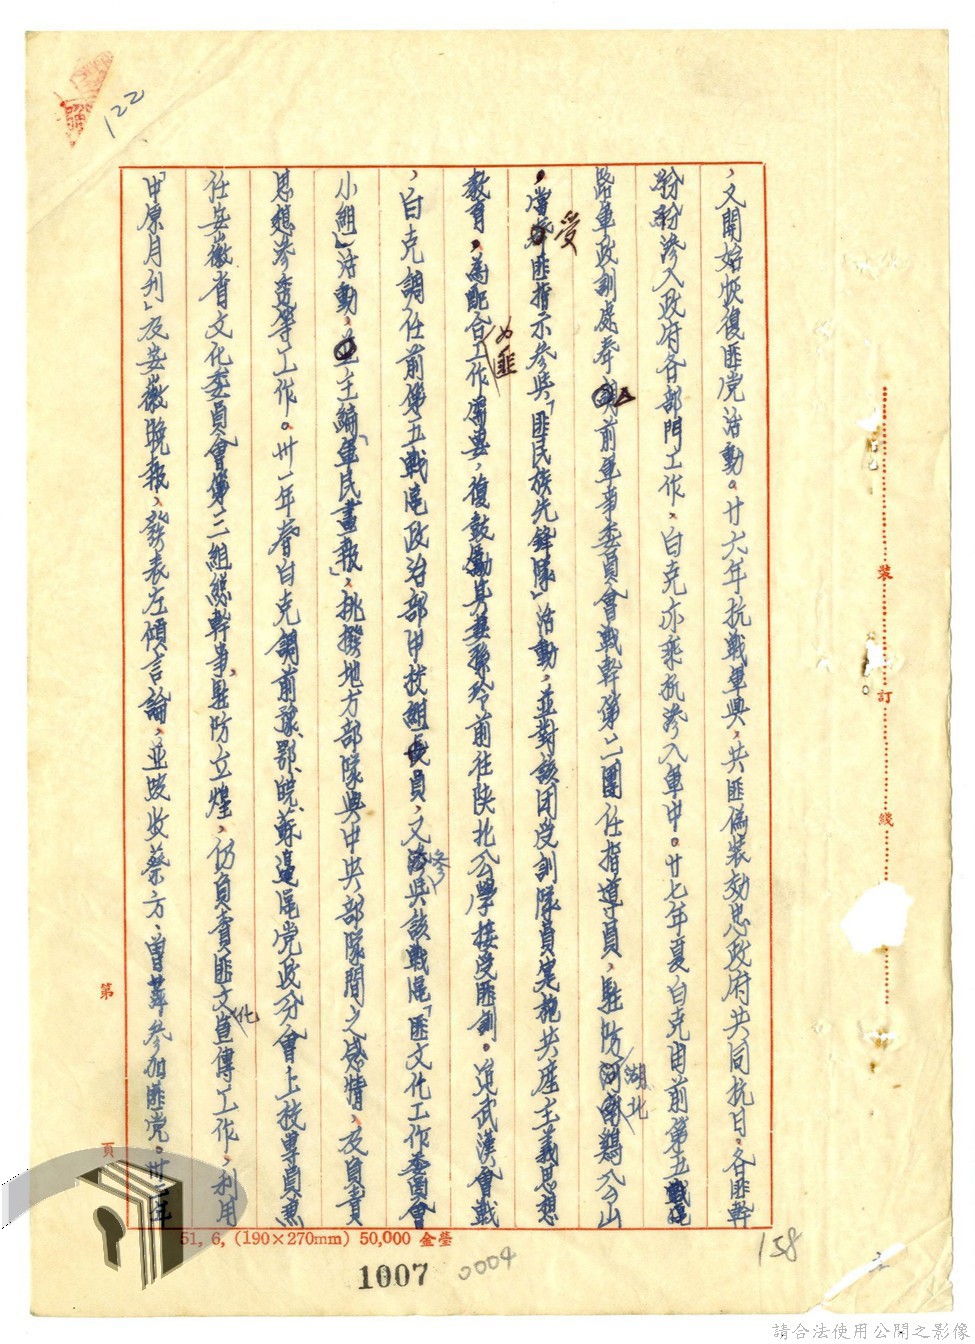 122
，又開始恢復匪党活動。廿六年抗戰軍興，共匪偽裝効忠政府共同抗日。各匪幹
紛紛滲入政府各部門工作，白克亦乘抗滲入軍中。廿七年夏白克由前第五戰區
路軍政訓處奉調前軍事委員會戰幹第二團任指導員，駐防湖北鷄公山
，當受匪指示參與「匪民族先鋒隊」活動，並對該团受訓隊員宣揚共產主義思想
教育，為配合匪工作需要，復鼓勵其妻孫玲前往陝北公學接受匪訓。迨武漢會戰
，白克調任前第五戰區政治部中校組員，又參與該戰區「匪文化工作委員會
小組」活動，主編「軍民畫報」，挑撥地方部隊與中央部隊間之感情，及負責
思想滲透等工作。卅一年春白克調前豫、鄂、皖、蘇邊區党政分會上校專員兼
任安徽省文化委員會第三組總幹事，駐防立煌，仍負責匪文化宣傳工作，利用
「中原月刊」及安徽晚報，發表左傾言論，並吸收蔡方、曾萍參加匪党。卅三年
裝
訂
綫
第
頁
51, 6, (190×270mm) 50,000 金瑩
1007
0004
158
請合法使用公開之影像